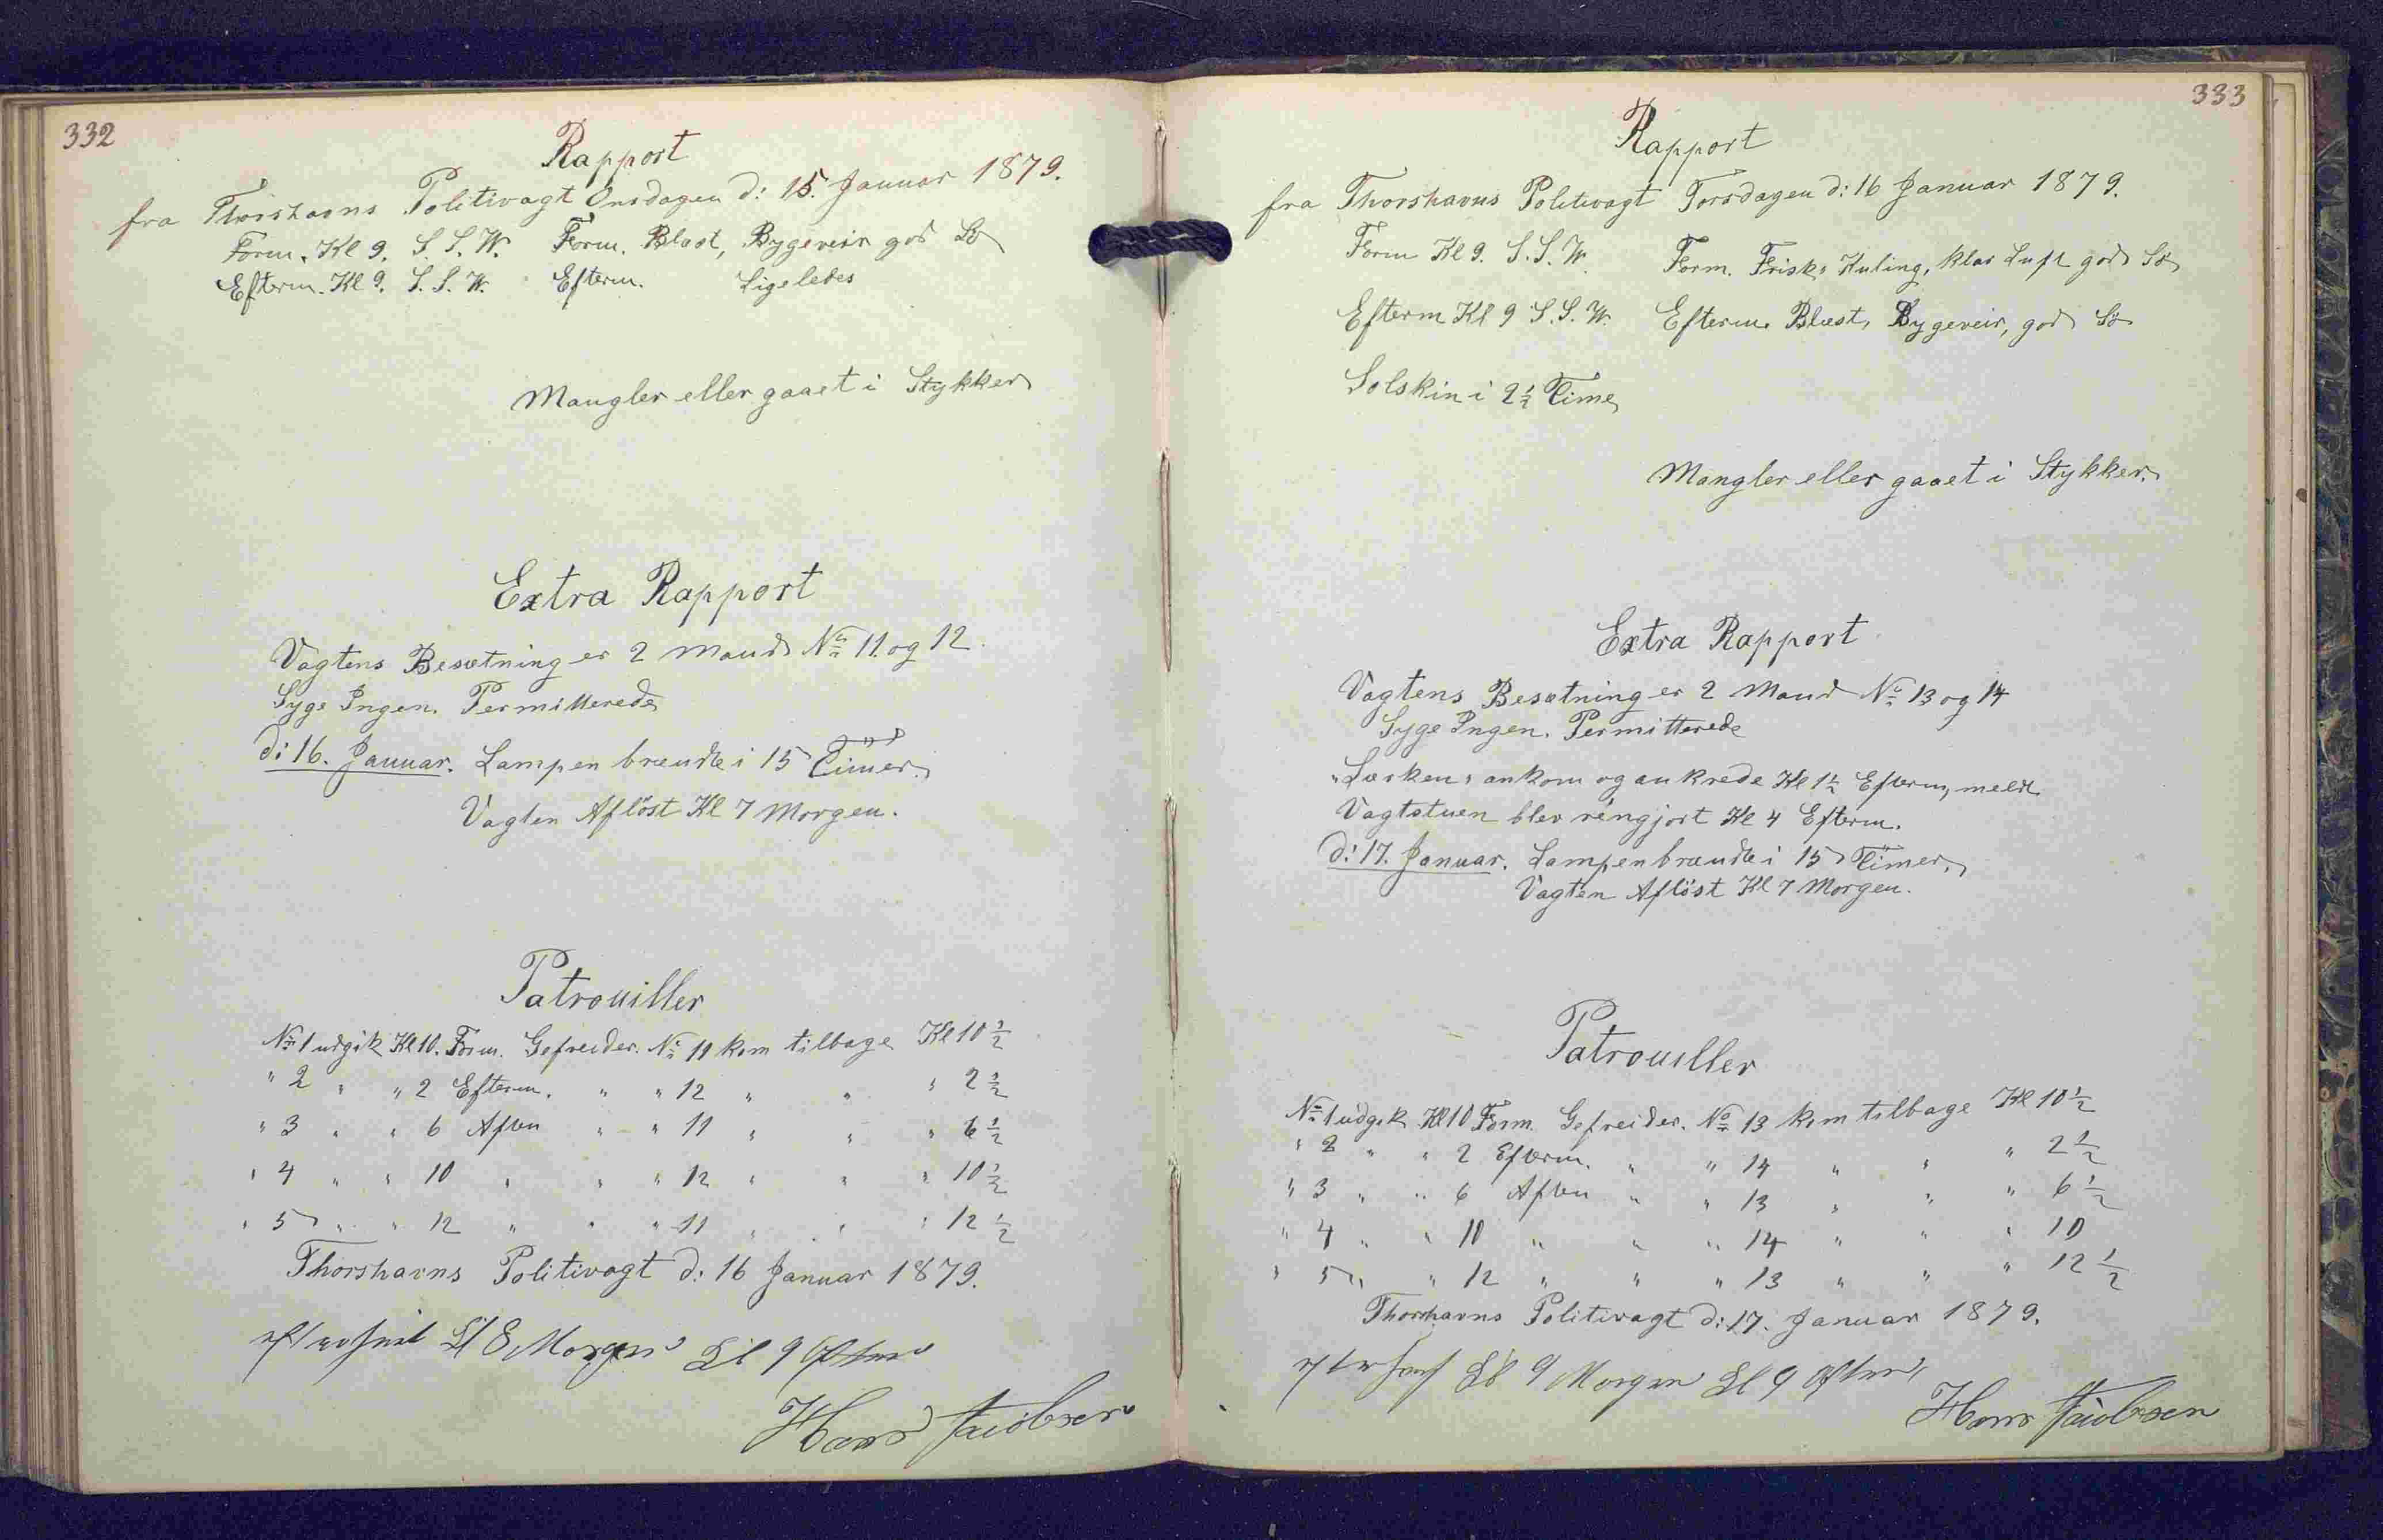 332
Rapport
fra Thorshavns Politivagt Onsdagen d: 15. Januar 1879.
Form. Kl 9. S. S. W. Form. Blæst, Bygeveir god Sø
Efterm. Kl 9. S. S. W. Efterm. Ligeledes
Mangler eller gaaet i Stykker
Extra Rapport
Vagtens Besætning er 2 Mand No 11. og 12.
Syge Ingen. Permitterede
d: 16. Januar. Lampen brændte i 15 Timer.
Vagten Aflöst Kl 7 Morgen.
Patrouiller
No 1 udgik Kl 10. Form. Gefreider. No 11 kom tilbage Kl 10 1/2
" 2 " " 2 Efterm. " " 12 " " " 2 1/2
" 3 " " 6 Aften " " 11 " " " 6 1/2
" 4 " " 10 " " " 12 " " " 10 1/2
" 5 " " 12 " " " 11 " " " 12 1/2
Thorshavns Politivagt d: 16 Januar 1879.
Kl 8 Morgen Kl 9 Efterm
Hans Jacobsen
333
Rapport
fra Thorshavns Politivagt Torsdagen d: 16 Januar 1879.
Form Kl 9. S. S. W. Form. Frisk Kuling, klar Luft god Sø
Efterm Kl 9 S. S. W. Efterm. Blæst, Bygeveir, god Sø
Solskin i 2 1/2 Time
Mangler eller gaaet i Stykker.
Extra Rapport
Vagtens Besætning er 2 Mand No 13 og 14
Syge Ingen. Permitterede
ankom og ankrede Kl 1 1/2 Efterm, meldt.
Vagtstuen blev rengjort Kl 4 Efterm.
d: 17. Januar. Lampen brændte i 15 Timer.
Vagten Aflöst Kl 7 Morgen.
Patrouiller
No 1 udgik Kl 10 Form. Gefreider. No 13 kom tilbage Kl 10 1/2
" 2 " " 2 Efterm. " " 14 " " " 2 1/2
" 3 " " 6 Aften " " 13 " " " 6 1/2
" 4 " " 10 " " " 14 " " " 10
" 5 " " 12 " " " 13 " " " 12 1/2
Thorshavns Politivagt d: 17. Januar 1879.
Kl 9 Morgen Kl 9 Efterm
Hans Jacobsen